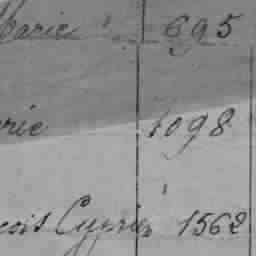 Marie 695
rie 1098
cois Cyprien 1562